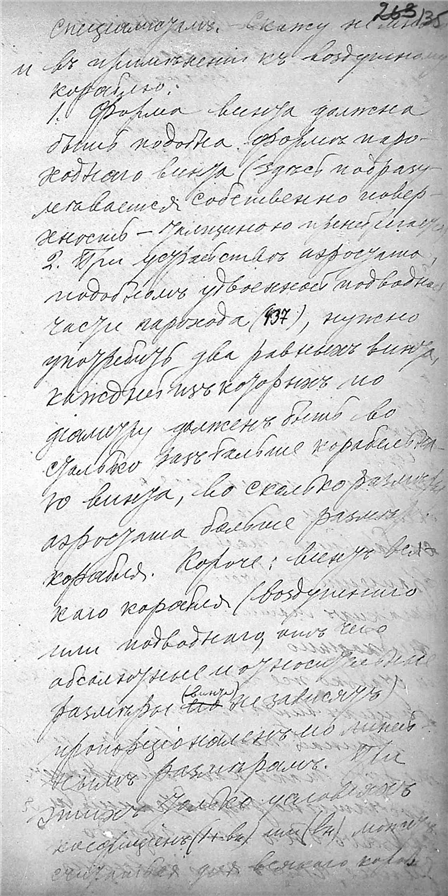 263 135
специалистъ. Скажу не много
и въ примѣненіи къ воздушному
кораблю:
1. Форма винта должна
быть подобна формѣ паро
ходнаго винта (здѣсь подразу
мевается собственно повер
хность – толщиною пренебрегается)
2. При устройствѣ аэростата,
подобномъ удвоенной подводной
части парохода (137), нужно
употребить два равныхъ винта,
каждый изъ которыхъ по
діаметру долженъ быть во
столько разъ больше корабельна
го винта, во сколько размѣръ
аэростата больше размѣр.
корабля. Короче: винтъ вся
каго корабля (воздушнаго
или подводнаго, отъ чего
абсолютные и относительные
размѣры (винта) не зависятъ)
пропорціоналенъ по линей
нымъ размѣрамъ. При
этихъ только условіяхъ
можетъ
для всякаго